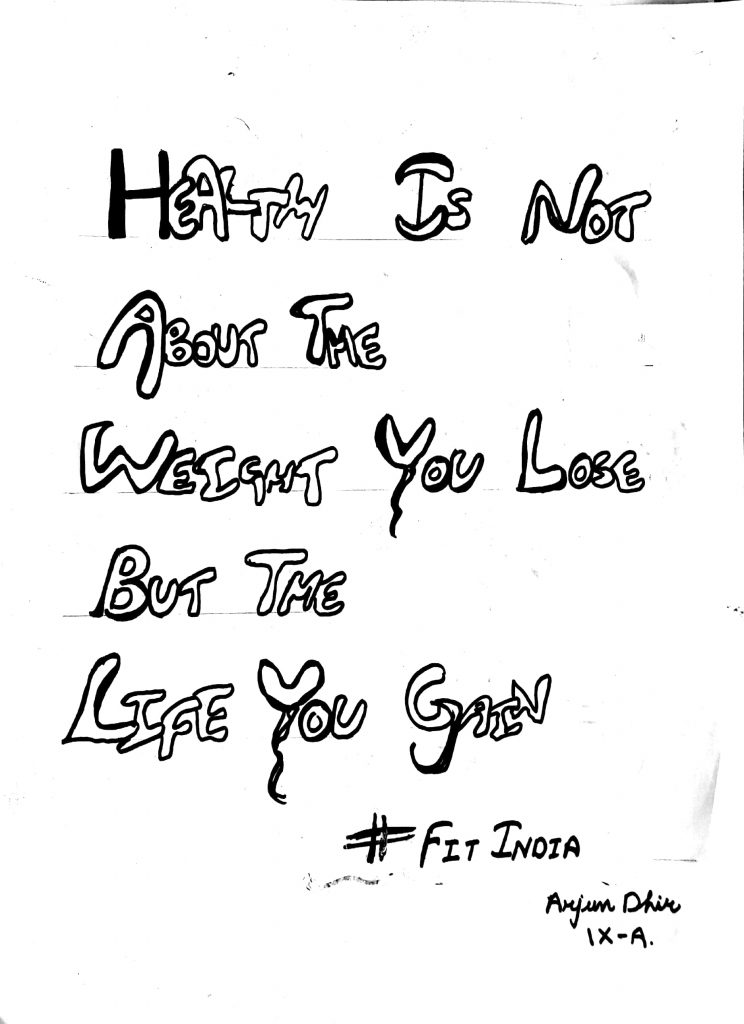 HEALTHY IS NOT
ABOUT THE
WEIGHT YOU LOSE
BUT THE
LIFE YOU GAIN
# FIT INDIA
Arjun Dhir
IX-A.